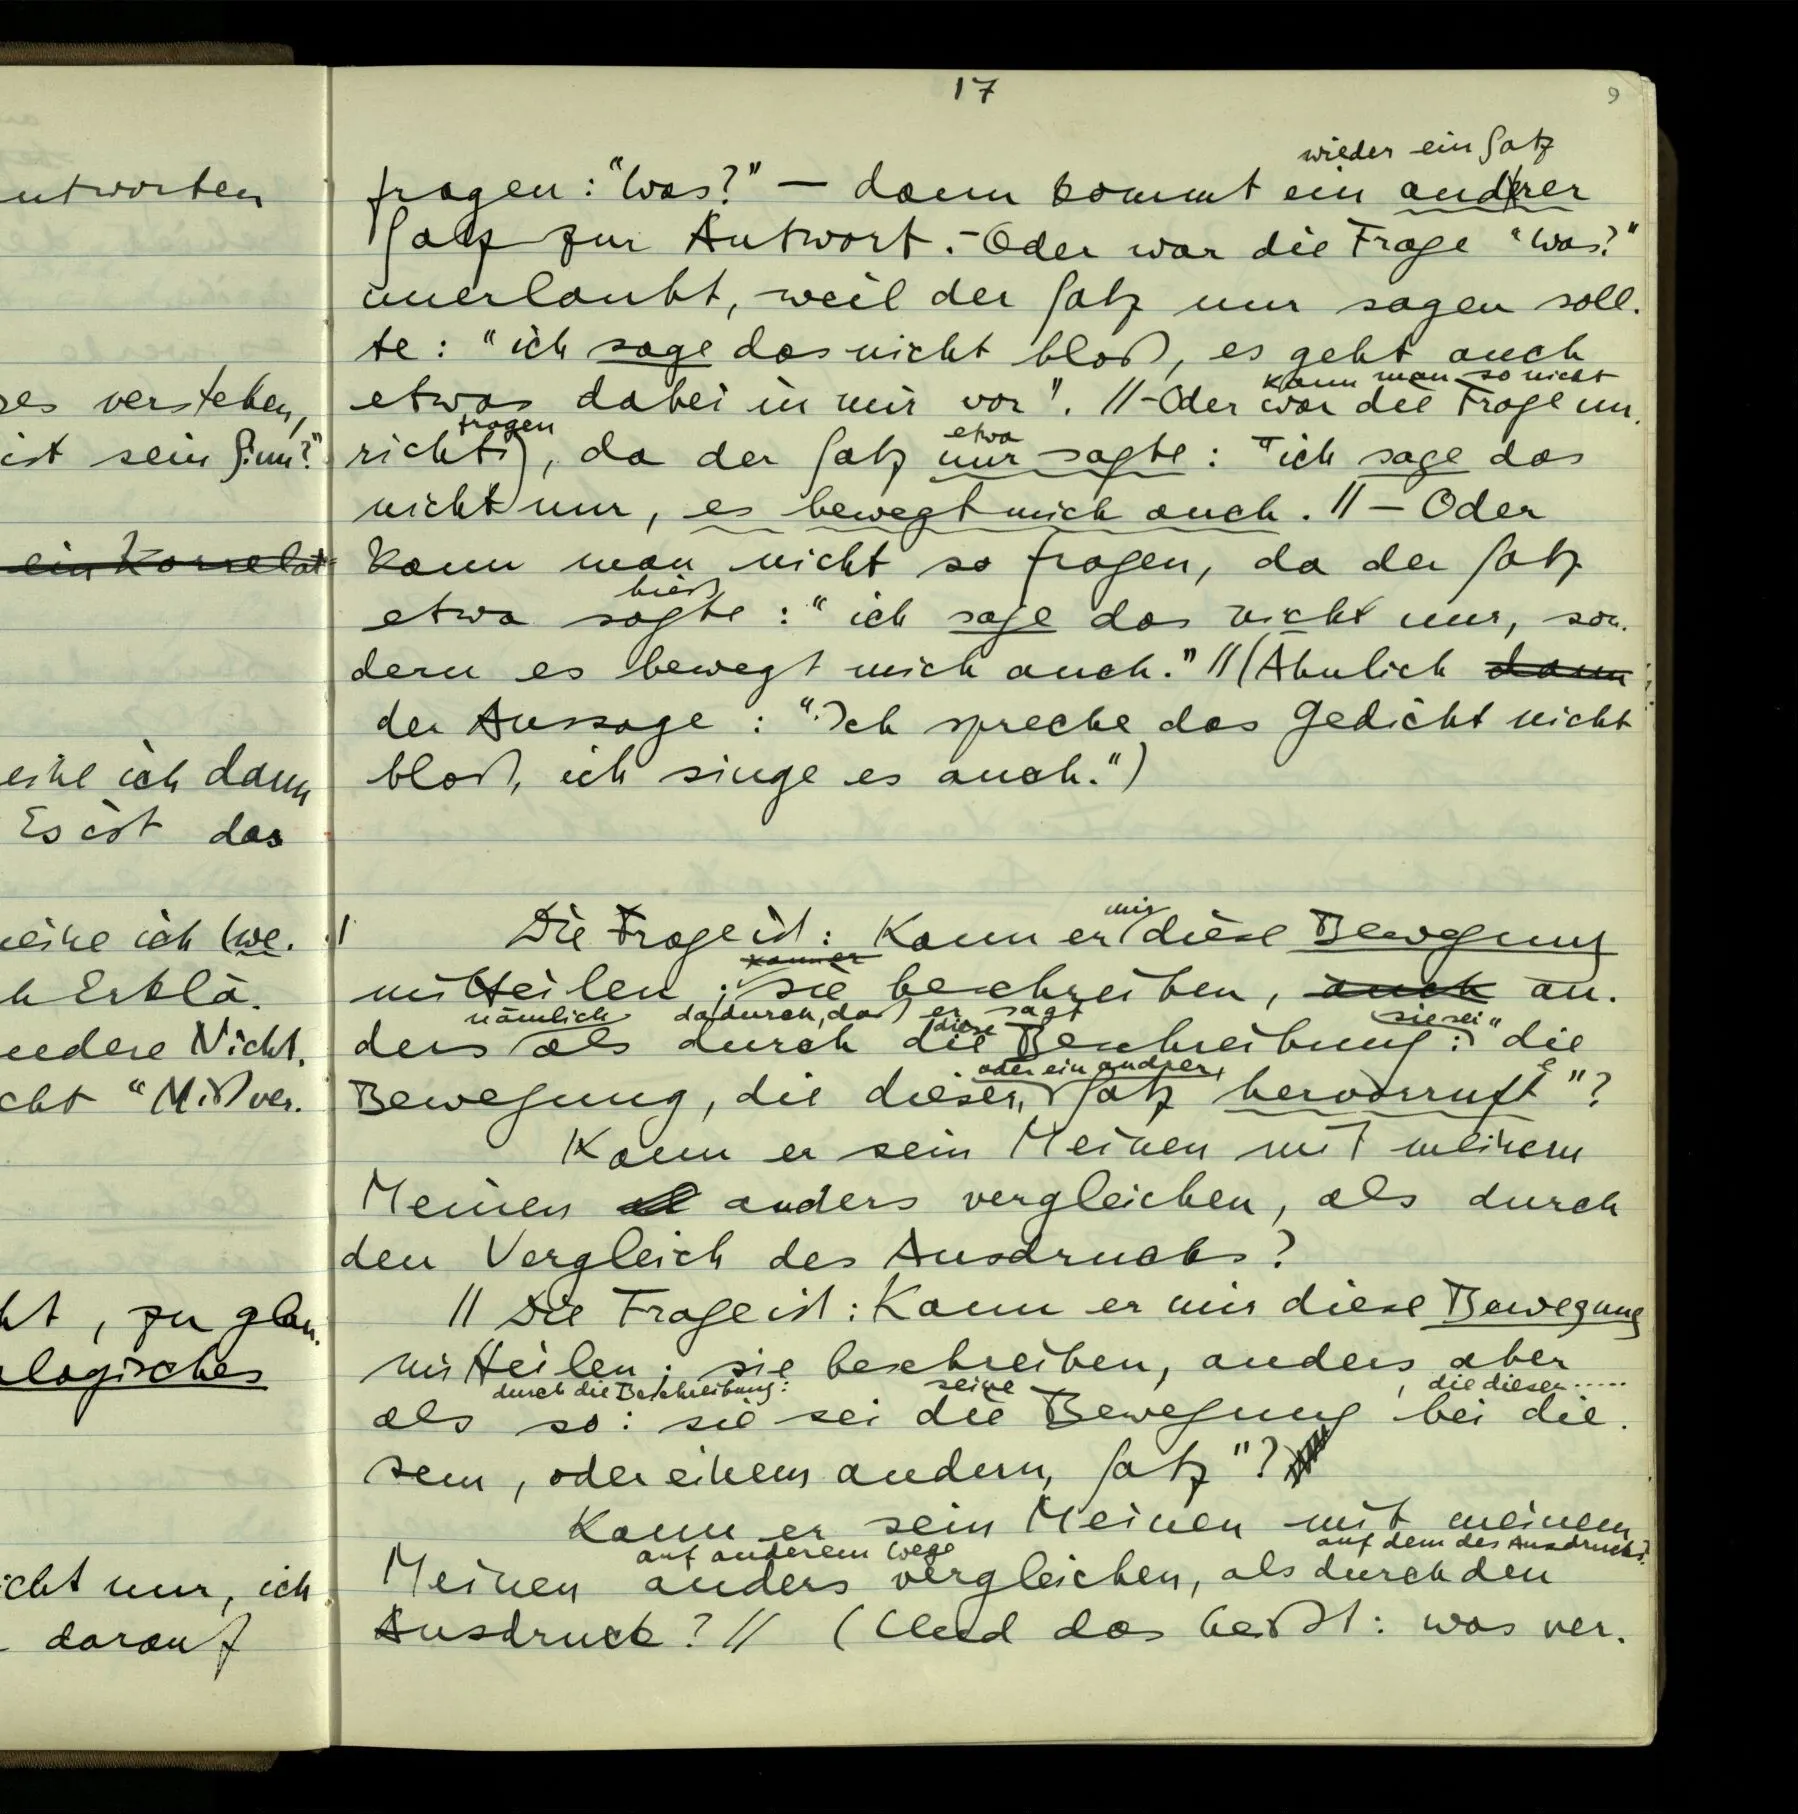 17
9
utworten
es verstehen,
ist sein Sinn?"
ein Korrelat
eine ich dann
Es ist das
eine ich (we-
h Erklä-
ndere Nicht-
cht "Mißver-
ht, zu glau-
logisches
icht nur, ich
darauf
wieder ein Satz
fragen: "Was?" — dann kommt ein andrer
Satz zur Antwort. – Oder war die Frage "was?"
unerlaubt, weil der Satz nur sagen soll-
te: "ich sage das nicht bloß, es geht auch
kann man so nicht
etwas dabei in mir vor". // – Oder war die Frage un-
fragen etwa
richtig, da der Satz nur sagte: "ich sage das
nicht nur, es bewegt mich auch. // – Oder
kann man nicht so fragen, da der Satz
hieß
etwa sagte: "ich sage das nicht nur, son-
dern es bewegt mich auch." // (Ähnlich dann
der Aussage: "Ich spreche das Gedicht nicht
bloß, ich singe es auch.")
mir
/ Die Frage ist: Kann er diese Bewegung
kann er
mitteilen; sie beschreiben, auch an-
nämlich dadurch, daß er sagt diese sie sei "
ders als durch die Beschreibung: "die
oder ein andrer, e
Bewegung, die dieser, Satz hervorruft"?
Kann er sein Meinen mit meinem
Meinen anders vergleichen, als durch
den Vergleich des Ausdrucks?
// Die Frage ist: Kann er mir diese Bewegung
mitteilen; sie beschreiben, anders aber
durch die Beschreibung: seine , die dieser .....
als so: sie sei die Bewegung bei die-
sem, oder einem andern, Satz"?
Kann er sein Meinen mit meinem
auf anderem Wege auf dem des Ausdrucks?
Meinen anders vergleichen, als durch den
Ausdruck? // (Und das heißt: was ver-